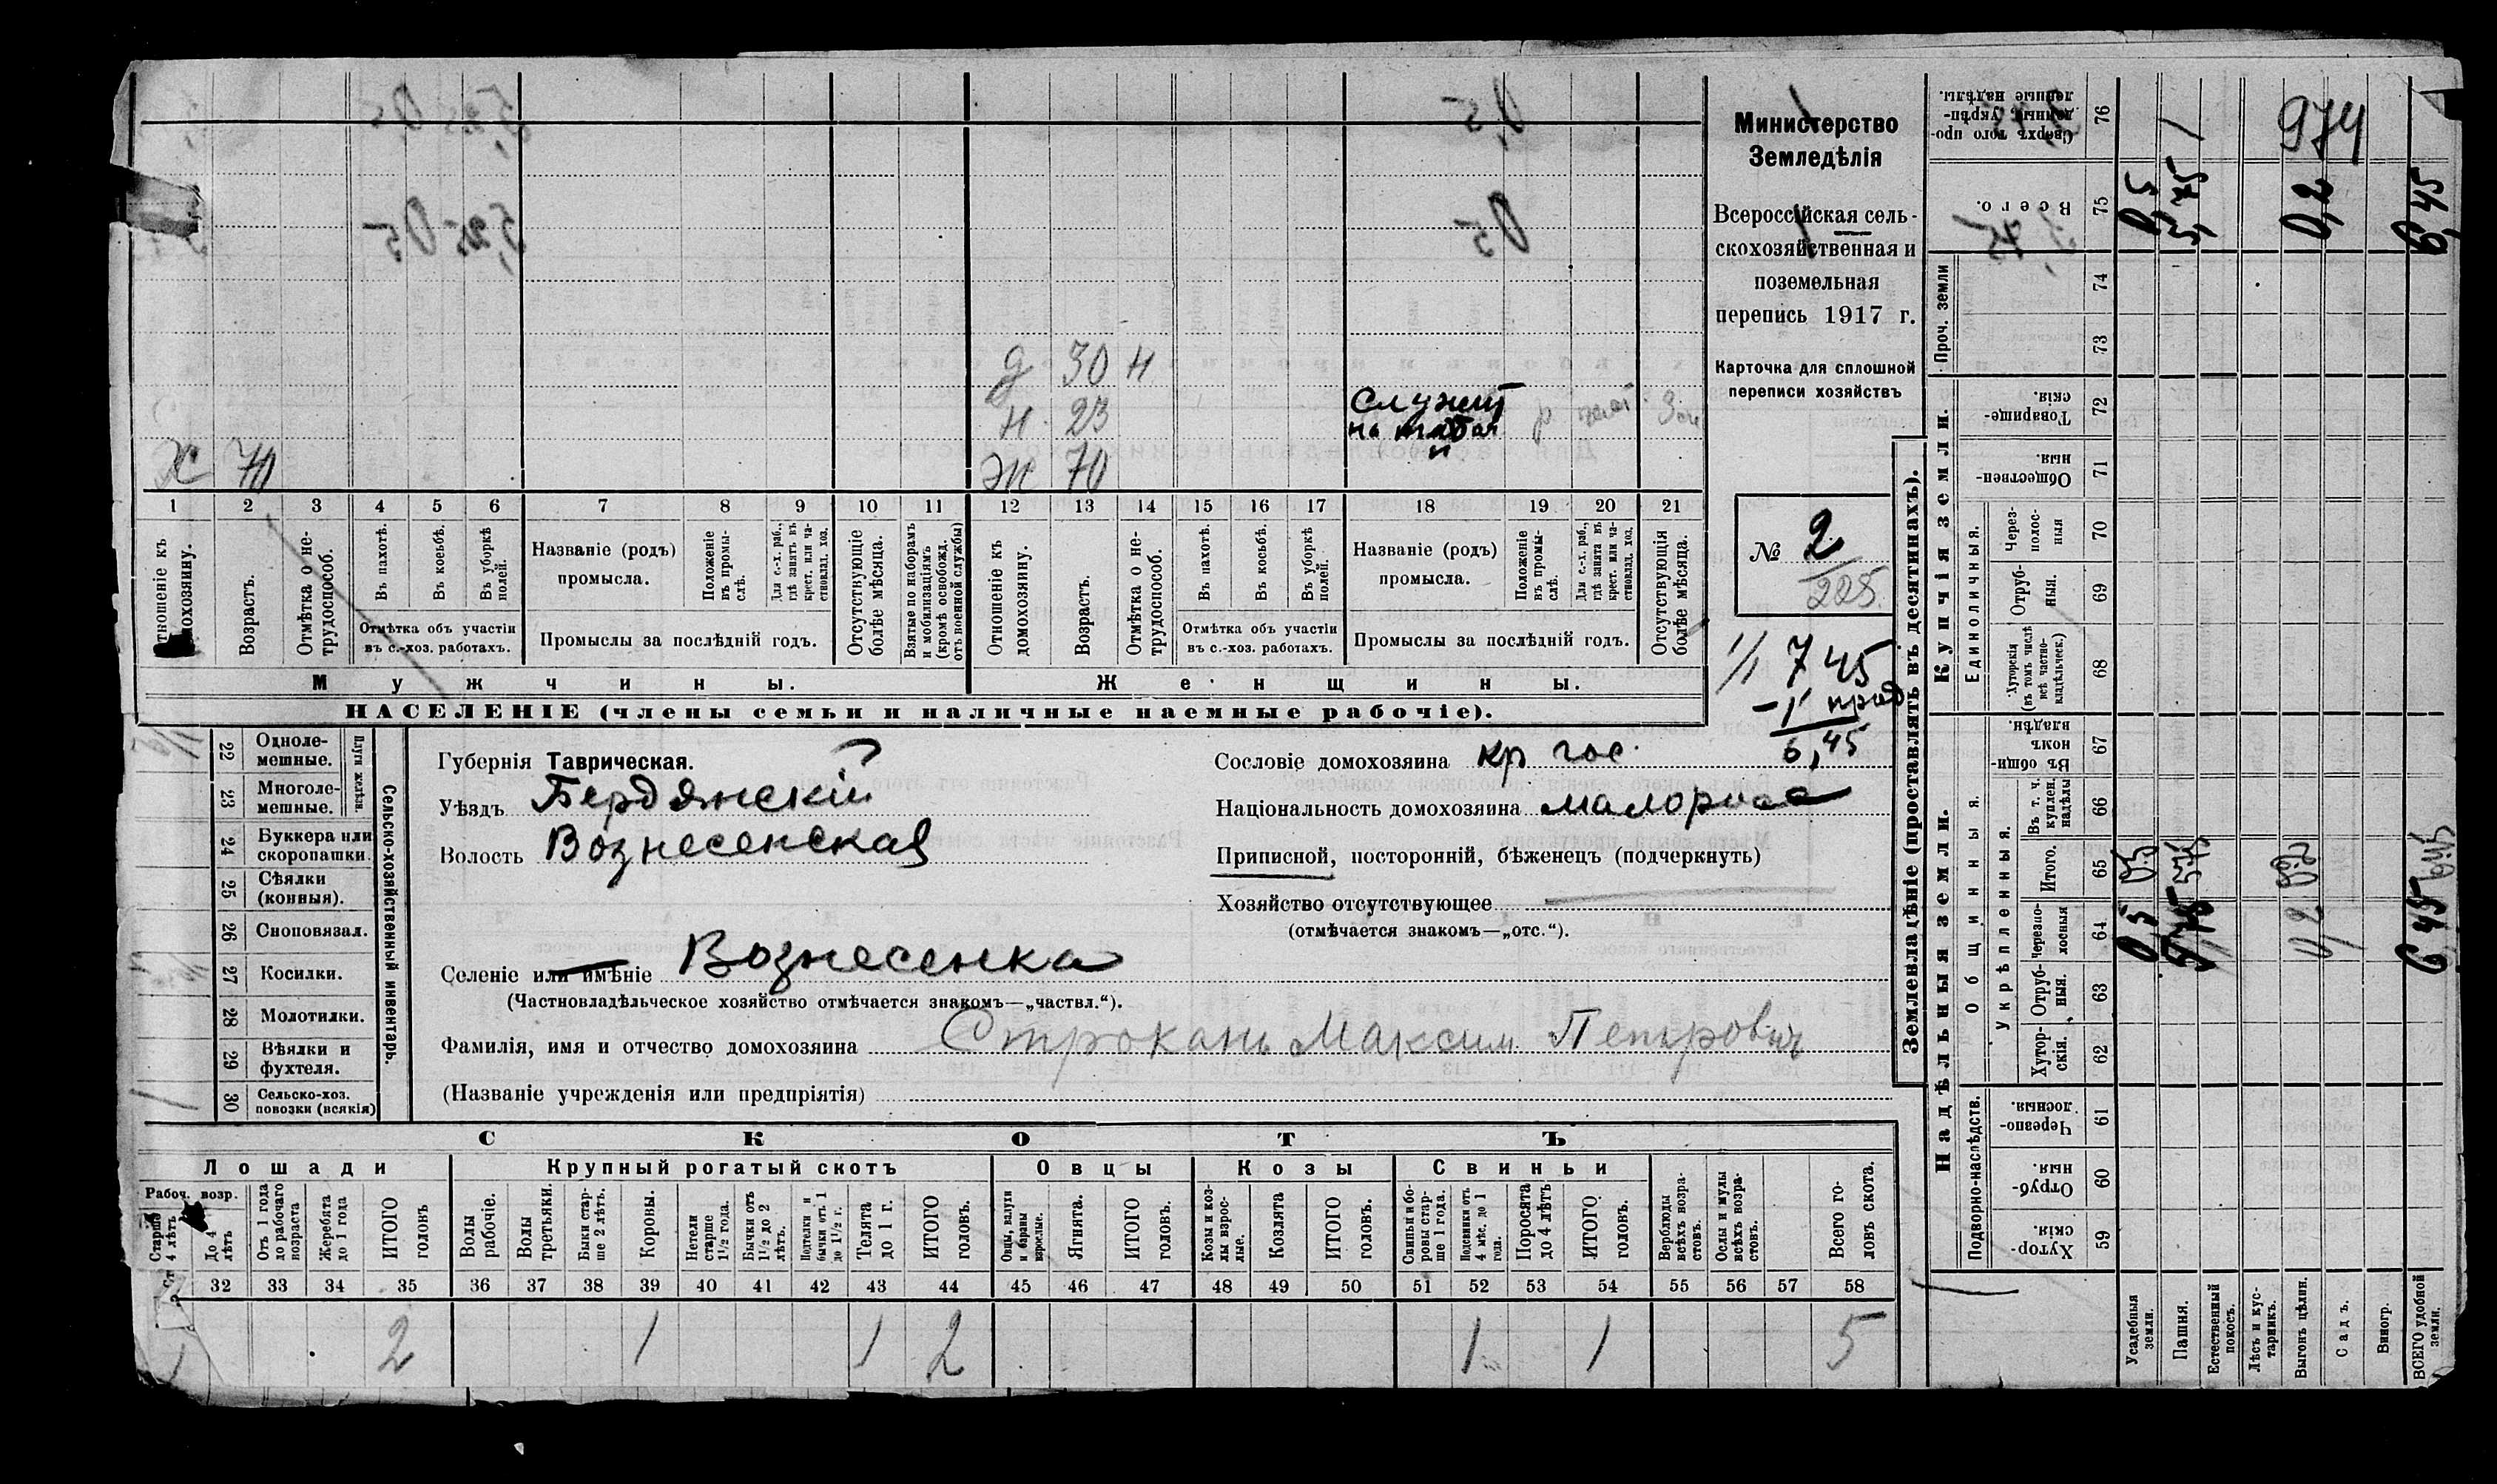 Министерство
Земледѣлія
Всероссійская сель-
скохозяйственная и
поземельная
перепись 1917 г.
Карточка для сплошной
переписи хозяйствъ
№ 2
225.
7 45
- 1 прод
6,45
Д 30 Н
Н. 23 Служит
на табач
Х 70 Ж 70
1 2 3 4 5 6 7 8 9 10 11 12 13 14 15 16 17 18 19 20 21
Отношеніе къ домохозяину.
Возрастъ.
Отмѣтка о не-
трудоспособ.
Въ пахотѣ.
Въ косьбѣ.
Въ уборкѣ
полей.
Отмѣтка объ участіи
въ с.-хоз. работахъ.
Названіе (родъ)
промысла.
Положеніе
въ промы-
слѣ.
Для с.-х. раб.,
гдѣ занятъ въ
крест. или ча-
стновлад. хоз.
Промыслы за послѣдній годъ.
Отсутствующіе
болѣе мѣсяца.
Взятые по наборамъ
и мобилизаціямъ
(кромѣ освобожд.
отъ военной службы)
Отношеніе къ
домохозяину.
Возрастъ.
Отмѣтка о не-
трудоспособ.
Въ пахотѣ.
Въ косьбѣ.
Въ уборкѣ
полей.
Отмѣтка объ участіи
въ с.-хоз. работахъ.
Названіе (родъ)
промысла.
Положеніе
въ промы-
слѣ.
Для с.-х. раб.,
гдѣ занята въ
крест. или ча-
стновлад. хоз.
Промыслы за послѣдній годъ.
Отсутствующія
болѣе мѣсяца.
Мужчины.
Женщины.
НАСЕЛЕНІЕ (члены семьи и наличные наемные рабочіе).
22 Одноле-
мешные.
23 Многоле-
мешные.
Плуги желѣзн.
24 Буккера или
скоропашки.
25 Сѣялки
(конныя).
26 Сноповязал.
27 Косилки.
28 Молотилки.
29 Вѣялки и
фухтеля.
30 Сельско-хоз.
повозки (всякія)
Сельско-хозяйственный инвентарь.
Губернія Таврическая.
Уѣздъ Бердянскій
Волость Вознесенская
Селеніе или имѣніе Вознесенка
(Частновладѣльческое хозяйство отмѣчается знакомъ—„частвл.“).
Фамилія, имя и отчество домохозяина Строкань Максим Петрович
(Названіе учрежденія или предпріятія)
Сословіе домохозяина кр гос.
Національность домохозяина малоросс
Приписной, посторонній, бѣженецъ (подчеркнуть)
Хозяйство отсутствующее
(отмѣчается знакомъ—„отс.“).
СКОТЪ
Лошади
Крупный рогатый скотъ
Овцы
Козы
Свиньи
Рабоч. возр.
Старше
4 лѣтъ
До 4
лѣтъ
Отъ 1 года
до рабочаго
возраста
Жеребята
до 1 года
ИТОГО
головъ
Волы
рабочіе.
Волы
третьяки.
Быки стар-
ше 2 лѣтъ.
Коровы.
Нетели
старше
1½ года.
Бычки отъ
1½ до 2
лѣтъ.
Подтелки и
бычки отъ 1
до 1½ г.
Телята
до 1 г.
ИТОГО
головъ.
Овцы, валухи
и бараны
взрослые.
Ягнята.
ИТОГО
головъ.
Козы и коз-
лы взрос-
лые.
Козлята
ИТОГО
головъ.
Свиньи и бо-
ровы стар-
ше 1 года.
Подсвинки отъ
4 мѣс. до 1
года.
Поросята
до 4 мѣс.
ИТОГО
головъ.
Верблюды
всѣхъ возра-
стовъ.
Ослы и мулы
всѣхъ возра-
стовъ.
Всего го-
ловъ скота.
32 33 34 35 36 37 38 39 40 41 42 43 44 45 46 47 48 49 50 51 52 53 54 55 56 57 58
2 1 1 2 1 1 5
Землевладѣніе (проставлять въ десятинахъ).
Надѣльныя земли.
Купчія земли.
Проч. земли
Подворно-наслѣдств.
Общинныя.
Укрѣпленныя.
Единоличныя.
Сверхъ того про-
данные укрѣп-
ленные надѣлы. 76
Всего. 75
74
73
Товарище-
скія 72
Обществен-
ныя 71
Через-
полос-
ныя 70
Отруб-
ныя. 69
Хуторскія
(въ томъ числѣ
всѣ частно-
владѣльческ.) 68
Въ общин-
номъ
владѣн. 67
Въ т. ч.
куплен.
надѣлы 66
Итого. 65
Черезпо-
лосныя 64
Отруб-
ныя. 63
Хутор-
скія. 62
Черезпо-
лосныя. 61
Отруб-
ныя. 60
Хутор-
скія. 59
Усадебныя
земли.
Пашня.
Естественный
покосъ.
Лѣсъ и кус-
тарникъ.
Выгонъ цѣлин.
Садъ.
Виногр.
ВСЕГО удобной
земли.
974
0,5 5,75 0,2 6,45
0,5 5,75 0,2 6,45